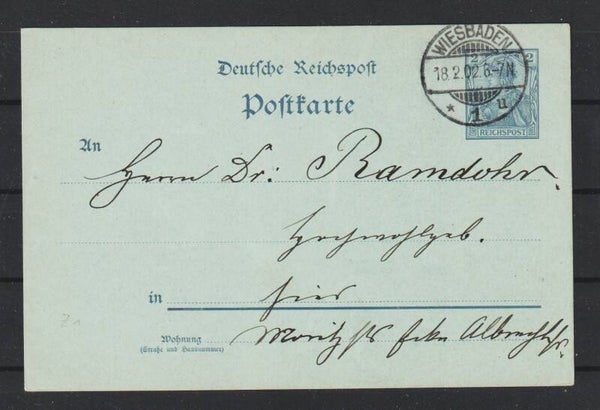 WIESBADEN
18.2.02.6-7N.
* 1 u
2 2
REICHSPOST
Deutsche Reichspost
Postkarte
An
Herrn Dr: Ramdohr.
Hochwohlgeb.
in hier
Wohnung
(Straße und Hausnummer)
Moritzstr Ecke Albrechtstr.